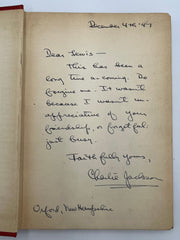 December 4th '47
Dear Lewis —
This has been a
long time a-coming. Do
forgive me. It wasn't
because I wasn't un-
appreciative of your
friendship, or forgetful:
just busy.
Faithfully yours,
Charlie Jackson
Orford, New Hampshire